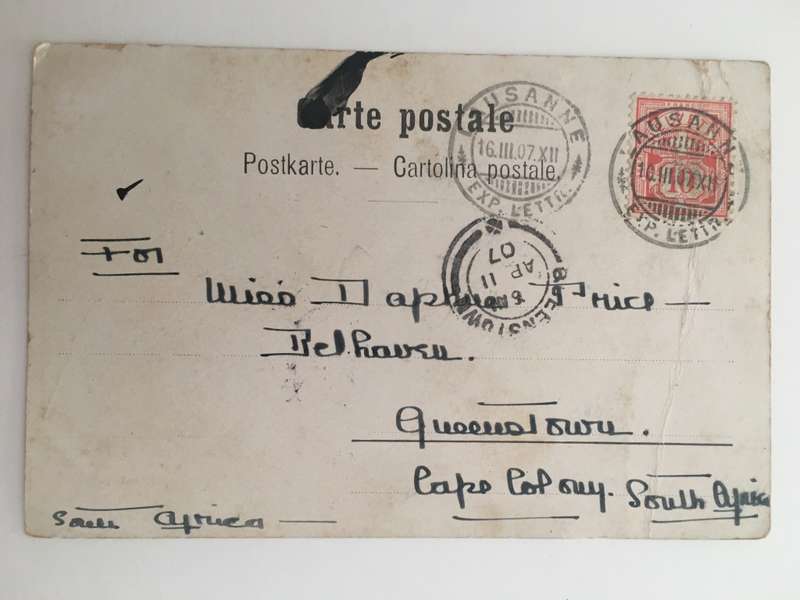 Carte postale
Postkarte. — Cartolina postale.
LAUSANNE
16.III.07.XII
EXP. LETTR.
LAUSANNE
16.III.07.XII
EXP. LETTR.
10
QUEENSTOWN
AP 11
07
For
Miss Daphne Price —
Belhaven.
Queenstown.
Cape Colony. South Africa
South Africa —